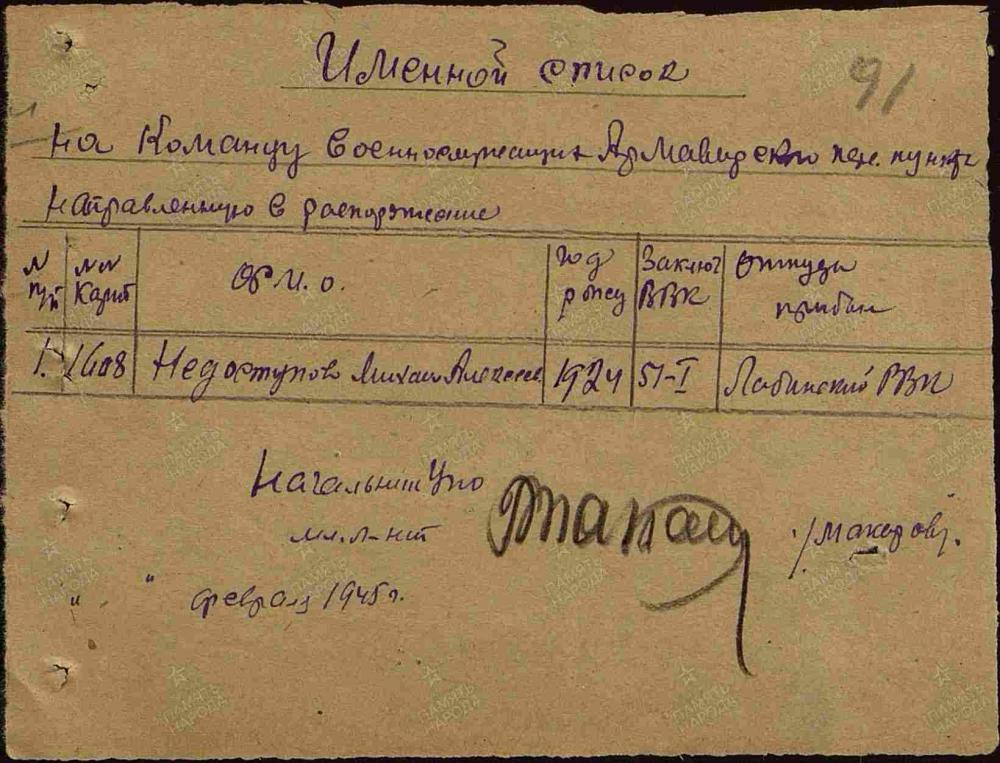 Именной список
91
на Команду военнослужащих Армавирского пер. пункта
направленную в распоряжение
№ п/п №№ Карт Ф.И.О. год рожд Заключ ВВК Откуда прибыл
1. 1608 Недоступов Михаил Алексеев 1924 51-I Лабинский РВК
Начальник Упо
мл. л-нт /Макеров/.
" " февраля 1945 г.
ПАМЯТЬ НАРОДА